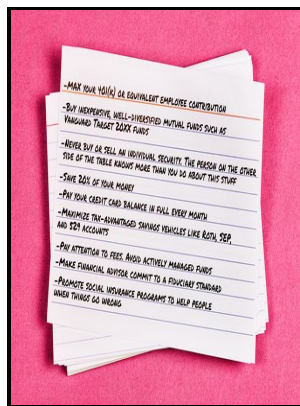 -MAX YOUR 401(K) OR EQUIVALENT EMPLOYEE CONTRIBUTION
-BUY INEXPENSIVE, WELL-DIVERSIFIED MUTUAL FUNDS SUCH AS
VANGUARD TARGET 20XX FUNDS
-NEVER BUY OR SELL AN INDIVIDUAL SECURITY. THE PERSON ON THE OTHER
SIDE OF THE TABLE KNOWS MORE THAN YOU DO ABOUT THIS STUFF
-SAVE 20% OF YOUR MONEY
-PAY YOUR CREDIT CARD BALANCE IN FULL EVERY MONTH
-MAXIMIZE TAX-ADVANTAGED SAVINGS VEHICLES LIKE ROTH, SEP,
AND 529 ACCOUNTS
-PAY ATTENTION TO FEES. AVOID ACTIVELY MANAGED FUNDS
-MAKE FINANCIAL ADVISOR COMMIT TO A FIDUCIARY STANDARD
-PROMOTE SOCIAL INSURANCE PROGRAMS TO HELP PEOPLE
WHEN THINGS GO WRONG